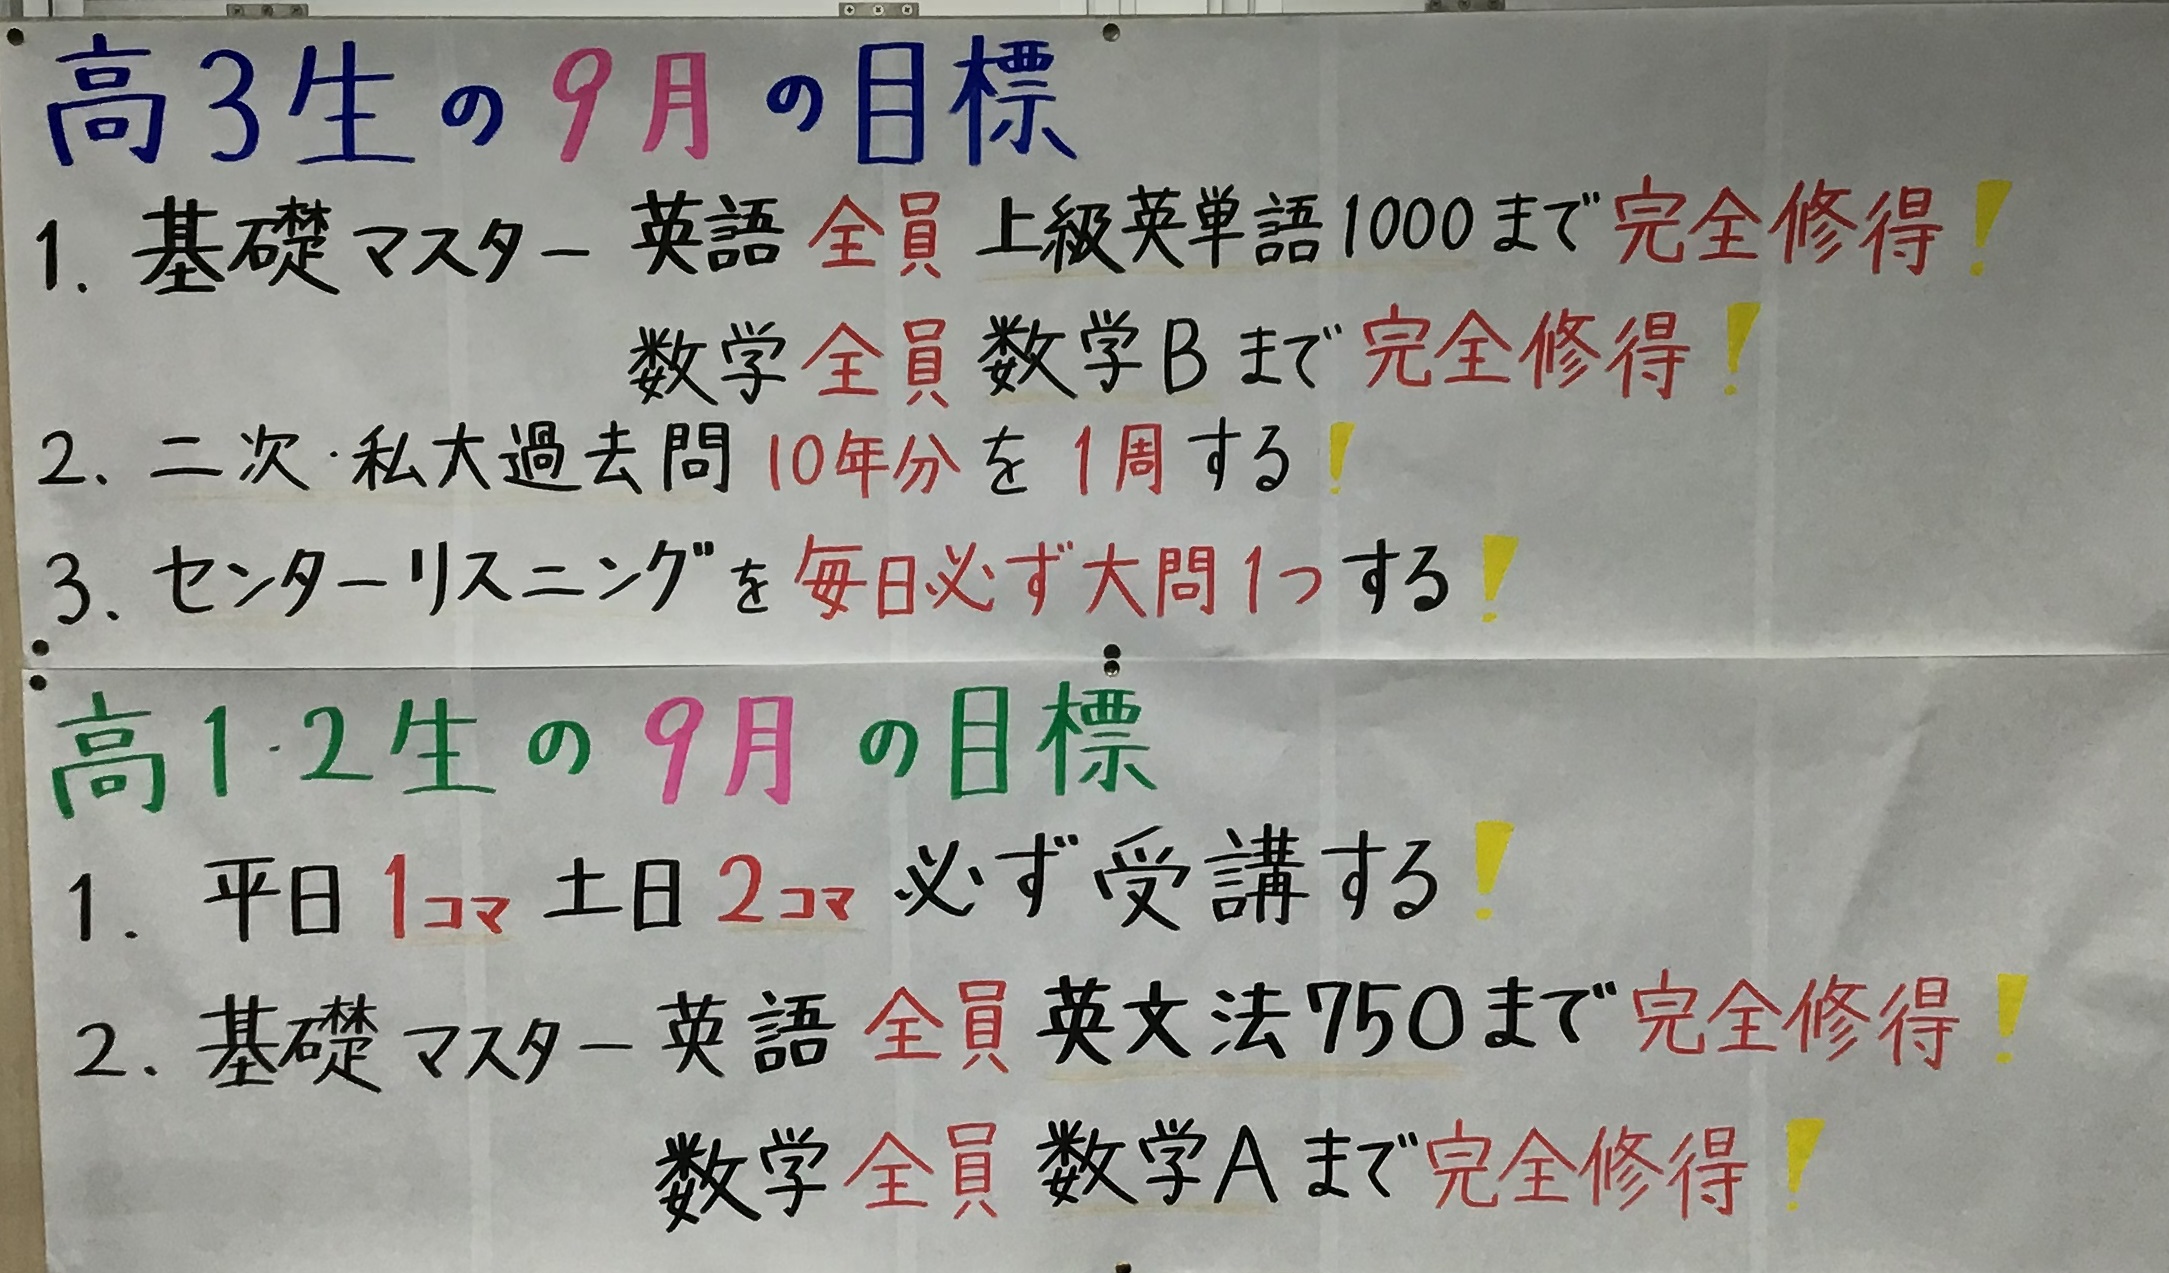 高3生の9月の目標
1. 基礎マスター 英語 全員 上級英単語1000まで完全修得!
数学 全員 数学Bまで完全修得!
2. 二次・私大過去問 10年分を1周する!
3. センターリスニングを毎日必ず大問1つする!
高1・2生の9月の目標
1. 平日1コマ 土日2コマ 必ず受講する!
2. 基礎マスター 英語 全員 英文法750まで完全修得!
数学 全員 数学Aまで完全修得!